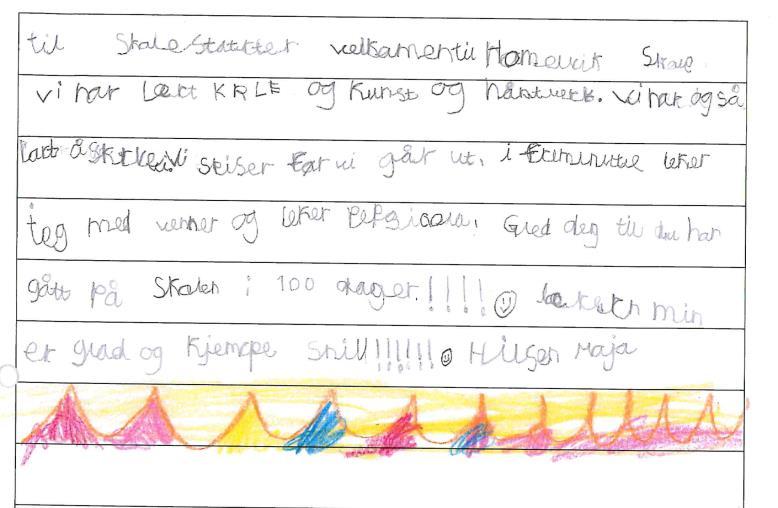 til Skolestarter velkomen til Homevik Skole
vi har lært KRLE og kunst og håntverk. vi har også
lært å skrive. Vi spiser før vi går ut. i friminutte leker
jeg med venner og leker pepsicola! Gled deg til du har
gått på skolen i 100 dager!!!! læreren min
er glad og kjempe snill!!!!!! Hilsen Maja